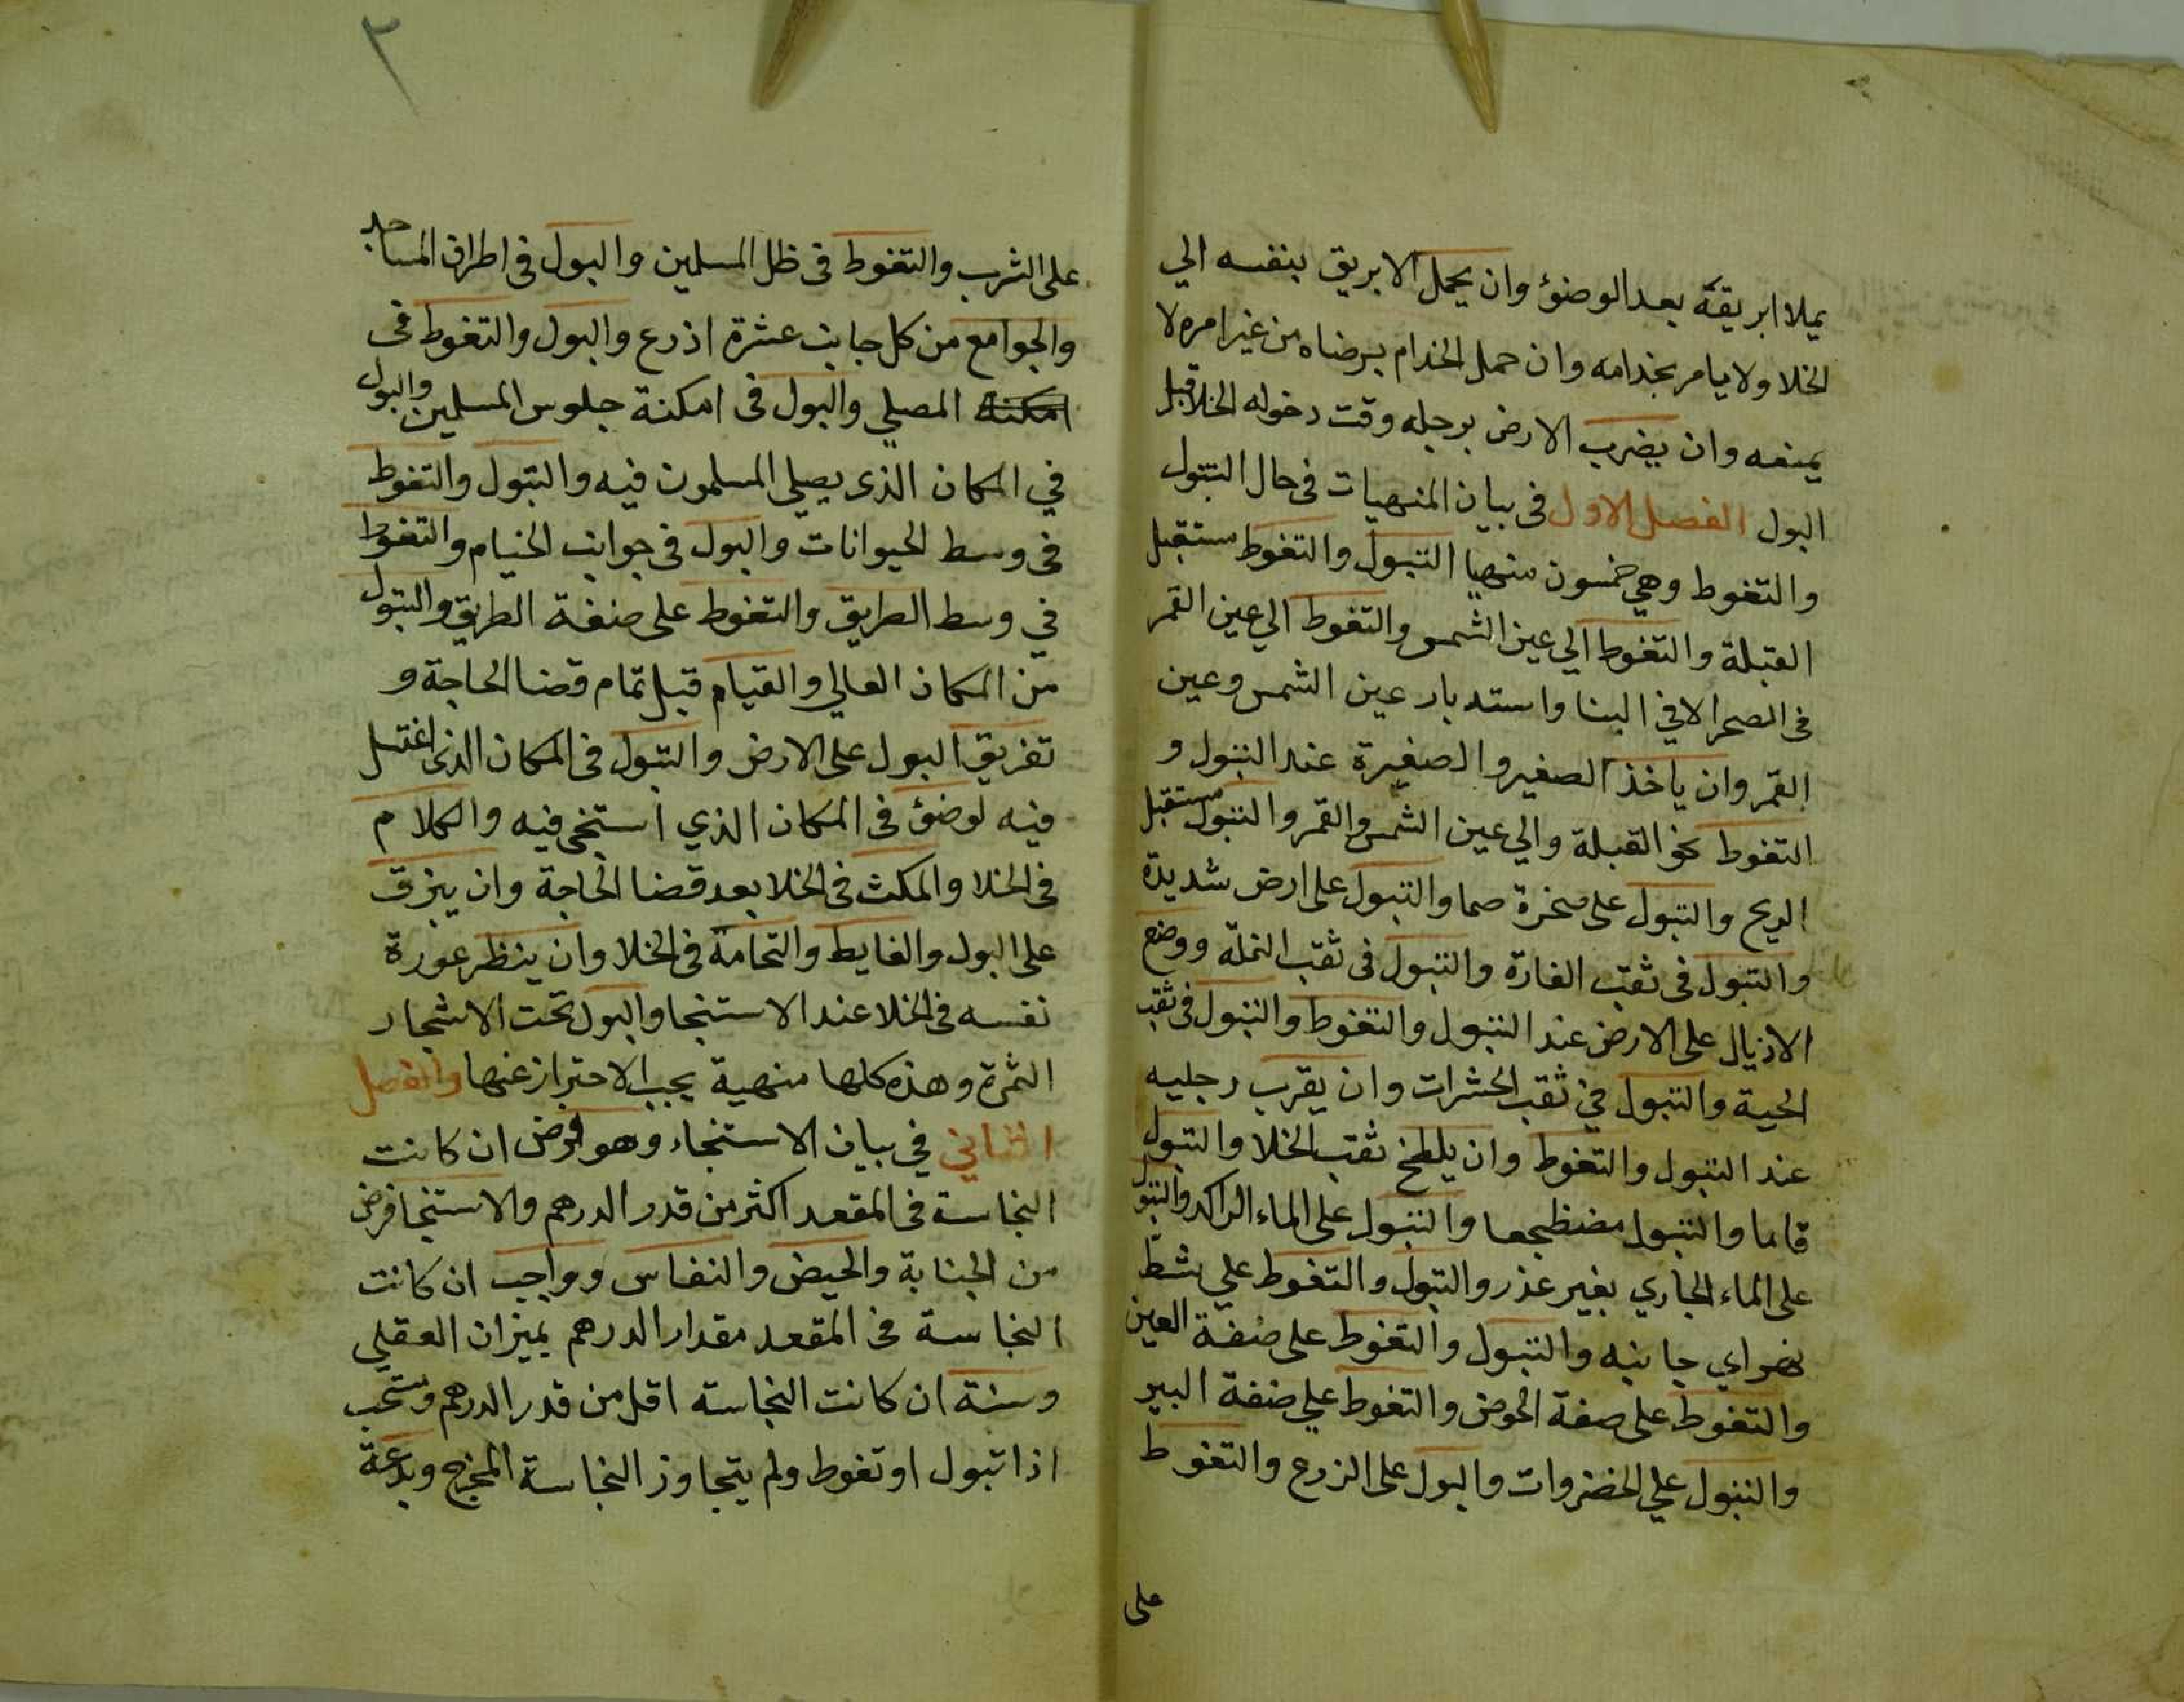 يملا ابريقه بعد الوضوء وان يحمل الابريق بنفسه الي
الخلا ولا يامر بخدامه وان حمل الخدام برضاه من غير امره لا
يمنعه وان يضرب الارض برجله وقت دخوله الخلا قبل
البول الفصل الاول فى بيان المنهيات فى حال التبول
والتغوط وهي خمسون منهيا التبول والتغوط مستقبل
القبلة والتغوط الي عين الشمس والتغوط الي عين القمر
فى الصحرا لا في البنا واستدبار عين الشمس وعين
القمر وان ياخذ الصغير والصغيرة عند التبول و
التغوط نحو القبلة والي عين الشمس والقمر والتبول مستقبل
الريح والتبول على صخرة صما والتبول على ارض شديدة
والتبول فى ثقب الفارة والتبول فى ثقب النملة ووضع
الاذيال على الارض عند التبول والتغوط والتبول فى ثقب
الحية والتبول في ثقب الحشرات وان يقرب رجليه
عند التبول والتغوط وان يلطخ ثقب الخلا والتبول
قاىما والتبول مضظجعا والتبول على الماء الراكد والتبول
على الماء الجاري بغير عذر والتبول والتغوط علي شط
نهر اي جانبه والتبول والتغوط على ضفة العين
والتغوط على صفة الحوض والتغوط علي ضفة البير
والتبول علي الخضروات والبول على الزرع والتغوط
على
٢
على الشرب والتغوط فى ظل المسلمين والبول فى اطراف المساجد
والجوامع من كل جانب عشرة اذرع والبول والتغوط فى
امكنة المصلي والبول فى امكنة جلوس المسلمين والبول
في المكان الذى يصلي المسلمون فيه والتبول والتغوط
فى وسط الحيوانات والبول فى جوانب الخيام والتغوط
في وسط الطريق والتغوط على ضفة الطريق والتبول
من المكان العالي والقيام قبل تمام قضا الحاجة و
تفريق البول على الارض والتبول فى المكان الذى اغتسل
فيه لوضوء فى المكان الذي استنجى فيه والكلام
فى الخلا والمكث فى الخلا بعد قضا الحاجة وان يبزق
على البول والغايط والنخامة فى الخلا وان ينظر عورة
نفسه فى الخلا عند الاستنجا والبول تحت الاشجار
الثمرة وهذه كلها منهية يجب الاحتراز عنها والفصل
الثاني في بيان الاستنجاء وهو فرض ان كانت
النجاسة فى المقعد اكثر من قدر الدرهم والاستنجا فرض
من الجنابة والحيض والنفاس وواجب ان كانت
النجاسة فى المقعد مقدار الدرهم بميزان العقلي
وسنة ان كانت النجاسة اقل من قدر الدرهم ومستحب
اذا تبول او تغوط ولم يتجاوز النجاسة المخرج وبدعة